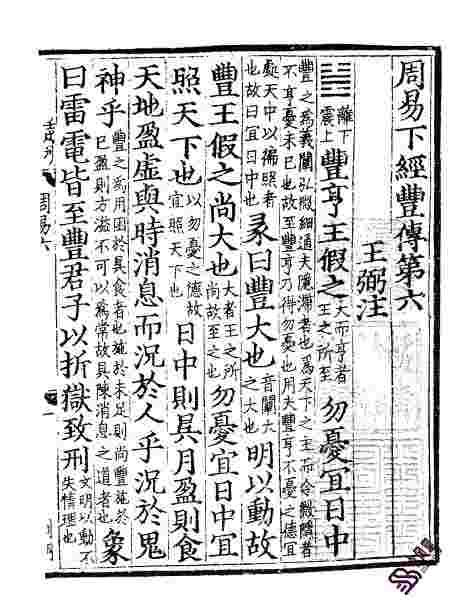 周易下經豐傳第六
王弼注
䷶ 離下震上 豐亨王假之 大而亨者王之所至 勿憂宜日中
豐之為義闡弘微細通夫隱滯者也為天下之主而令微隱者不亨憂未已也故至豐亨乃得勿憂也用夫豐亨不憂之德宜
處天中以徧照者也故曰宜日中也 彖曰豐大也 音闡大之大也 明以動故
豐王假之尚大也 大者王之所尚故至之也 勿憂宜日中宜
照天下也 以勿憂之德故宜照天下也 日中則昃月盈則食
天地盈虛與時消息而況於人乎況於鬼
神乎 豐之為用困於昃食者也施於未足則尚豐施於已盈則方溢不可以為常故具陳消息之道者也 象
曰雷電皆至豐君子以折獄致刑 文明以動不失情理也
周易六